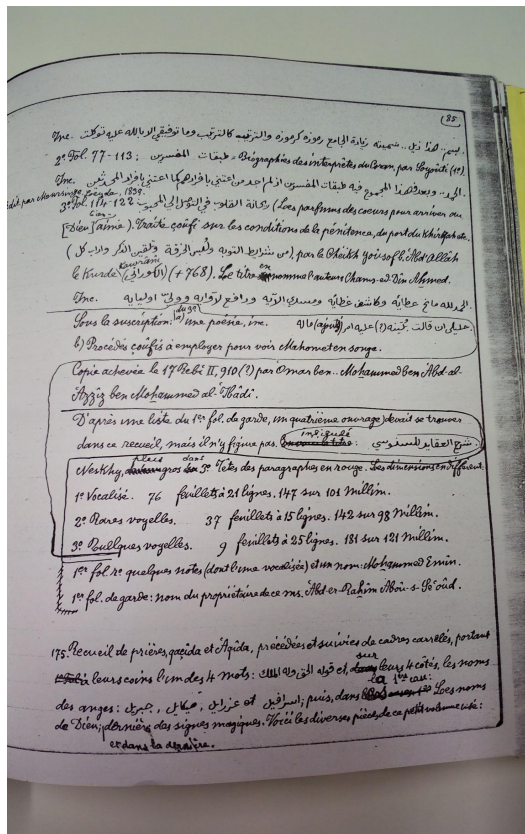 85
Inc. بسم .. هذا ذيل .. سميته زيادة الجامع رموزه كرموزه والترتيب كالترتيب وما توفيقي الا بالله عليه توكلت
2º Fol. 77-113; طبقات المفسرين = Biographies des interprètes du Coran, par Soyoûti (1º)
Inc. الحمد .. وبعد فهذا المجموع فيه طبقات المفسرين اذ لم اجد من اعتنى بافرادهم كما اعتنى بافراد المحدثين
édit par Moursinge, Leyde, 1839.
3º Fol. 114-122 ريحانة القلوب في التوصل الى المحبوب (Les parfums des coeurs pour arriver au
[Dieu] aimé). Traité çoûfi sur les conditions de la pénitence, du port du Khirqah etc.
(من شرايط التوبة ولبس الخرقة وتلقين الذكر واداب كل), par le Cheikh Yoûsof b. Abd Allâh
Kawrâni
le Kurde (الكوراني) (+ 768). Le titre nomme l'auteur Chams-ed Din Ahmed.
Inc. الحمد لله مانح عطائه وكاشف غطائه
Sous la suscription: a) une poésie, inc. خليلي ان قالت بثينة (?)
b) Procédés çoûfis à employer pour voir Mahomet en songe.
Copie achevée le 17 Rebî II, 910 (?) par Omar ben Mohammed ben Abd-al-
Azzîz ben Mohammed al-
D'après une liste du 1er fol. de garde, un quatrième ouvrage devait se trouver
dans ce recueil, mais il n'y figure pas. intitulé شرح العقايد للسنوسي:
Neskhy, plus gros dans 3º. Têtes des paragraphes en rouge. Les dimensions en diffèrent:
1º Vocalisé. 76 feuillets à 21 lignes. 147 sur 101 Millim.
2º Rares voyelles. 37 feuillets à 15 lignes. 142 sur 98 Millim.
3º Quelques voyelles. 9 feuillets à 25 lignes. 181 sur 121 Millim.
1er fol. rº quelques notes (dont une vocalisée) et un nom: Mohammed Emin.
1er fol. de garde: nom du propriétaire de ce ms. Abd-er-Rahîm Aboû-s-Se'oûd.
175. Recueil de prières, qaçida et Aqida, précédées et suivies de cadres carrelés, portant
leurs coins l'un des 4 mots: قوله الحق وله الملك, et sur leurs 4 côtés, les noms
des anges: جبريل, ميكايل, عزرايل et اسرافيل; puis, dans la 1ère cau: Les noms
de Dieu; dernière des signes magiques. Voici les diverses pièces de ce petit volume usé:
et dans la dernière.